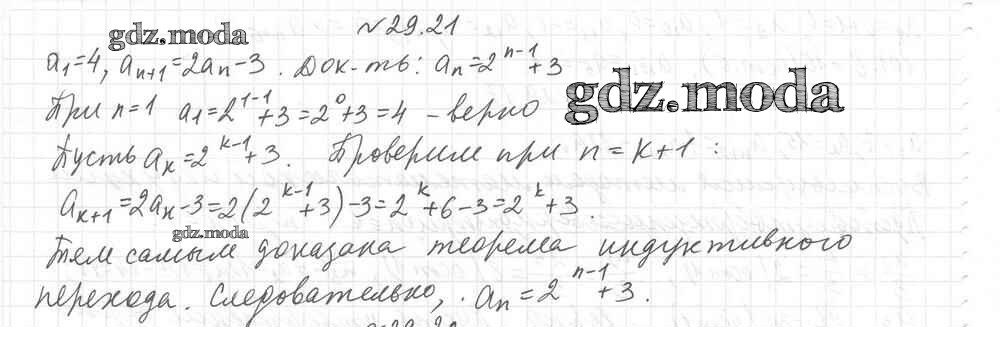 №29.21
gdz.moda
a₁=4, aₙ₊₁=2aₙ-3. Док-ть: aₙ=2ⁿ⁻¹+3
gdz.moda
При n=1 a₁=2¹⁻¹+3=2⁰+3=4 – верно
Пусть aₖ=2ᵏ⁻¹+3. Проверим при n=k+1:
aₖ₊₁=2aₖ-3=2(2ᵏ⁻¹+3)-3=2ᵏ+6-3=2ᵏ+3.
gdz.moda
Тем самым доказана теорема индуктивного
перехода. Следовательно, aₙ=2ⁿ⁻¹+3.